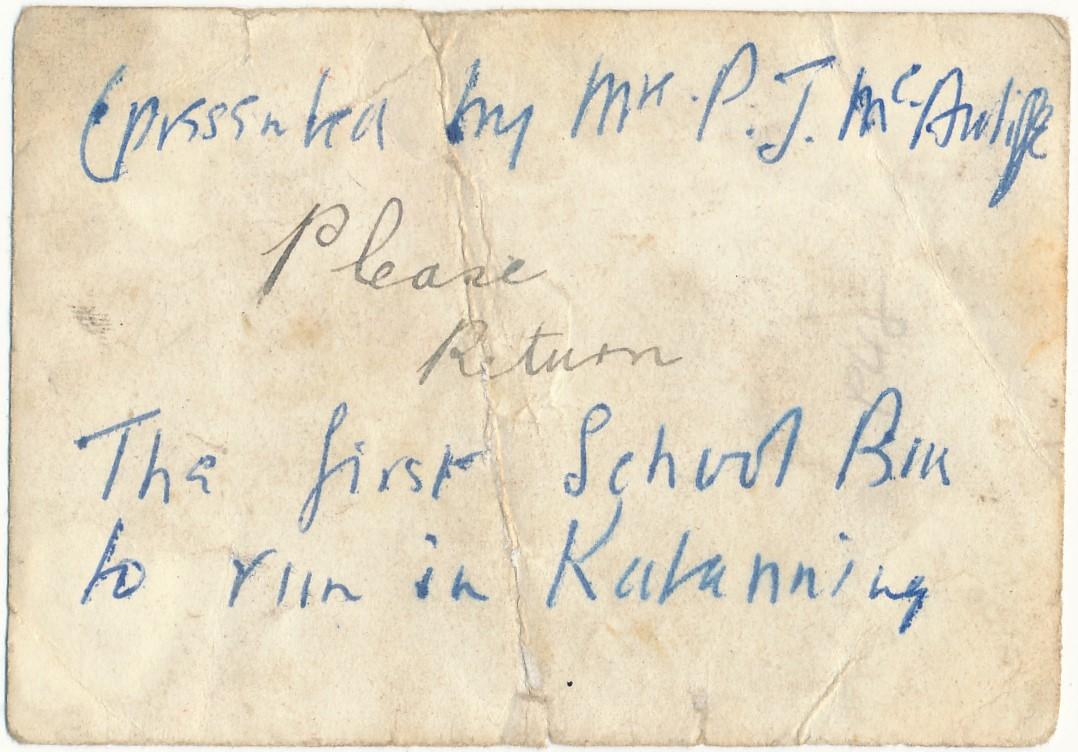 (presented by Mr. P. J. McAuliffe
Please
Return
The first School Bus
to run in Katanning